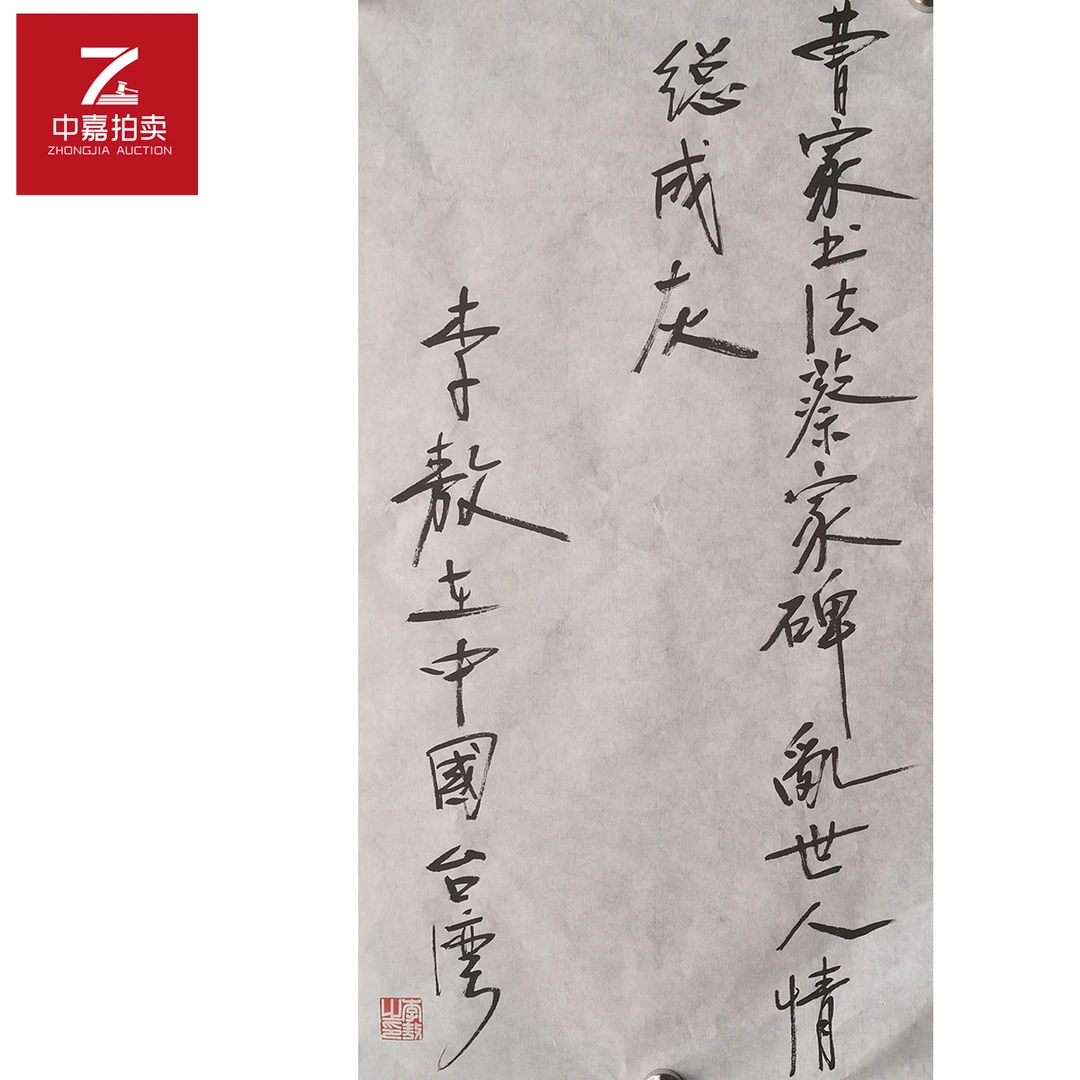 中嘉拍卖
ZHONGJIA AUCTION
曹家书法蔡家碑亂世人情
總成灰
李敖在中國台灣
李敖之印